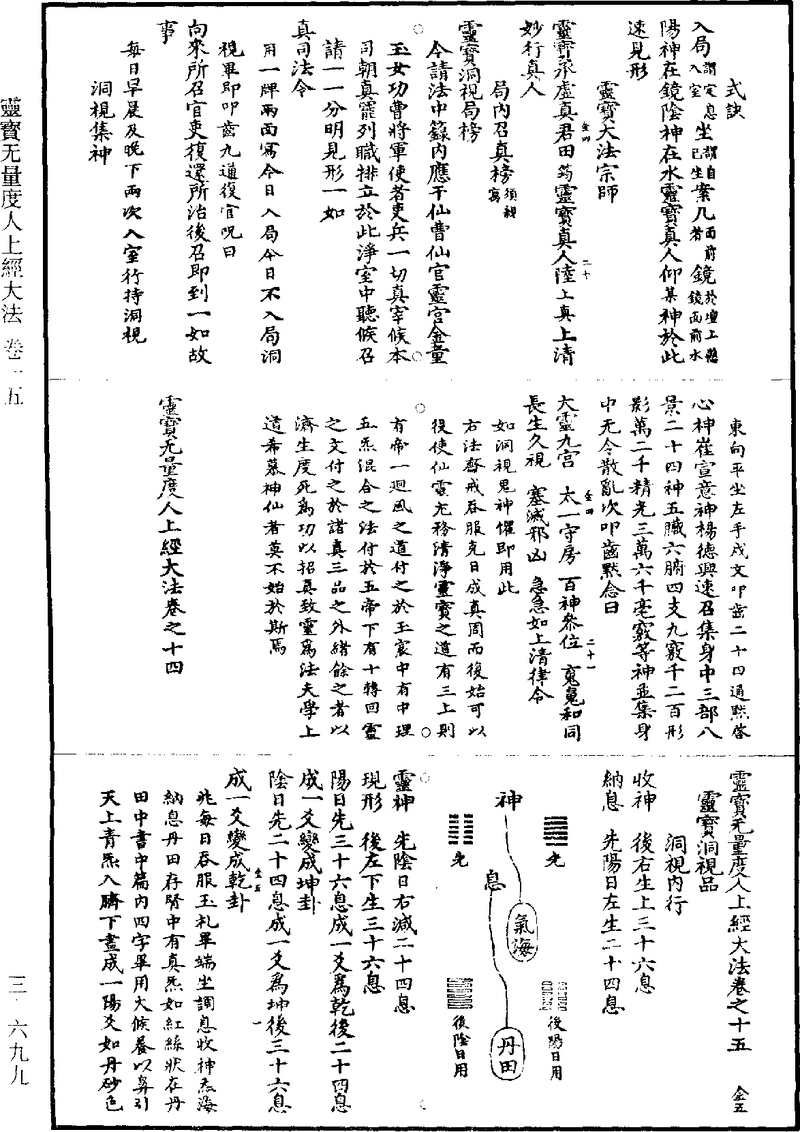 靈寶无量度人上經大法 卷一五
三·六九九
式訣
入局謂定息入室坐謂自己坐案几面前者鏡於壇上懸鏡面前水
陽神在鏡陰神在水靈寶真人仰某神於此
速見形
靈寶大法宗師
靈寶承虛真君田 筠靈寶真人陸上真上清
妙行真人
局內召真榜須親寫
靈寶洞視局榜
今請法中籙內應干仙曹仙官靈官金童
玉女功曹將軍使者吏兵一切真宰候本
司朝真罷列職排立於此淨室中聽候召
請一一分明見形一如
真司法令
用一牌兩面寫今日入局今日不入局洞
視畢即叩齒九通復官呪曰
向來所召官吏復還所治後召即到一如故
事
每日早晨及晚下兩次入室行持洞視
洞視集神
東向平坐左手戌文叩齒二十四通默啓
心神崔宣意神楊德興速召集身中三部八
景二十四神五臟六腑四支九竅千二百形
影萬二千精光三萬六千毫竅等神並集身
中无令散亂次叩齒默念曰
大靈九宮 太一守房 百神參位 䰟魄和同
長生久視 塞滅邪凶 急急如上清律令
如洞視鬼神懼即用此
右法齋戒吞服尅日成真周而復始可以
役使仙靈尤務清淨靈寶之道有三上則
有帝一迴風之道付之於玉宸中有中理
五炁混合之法付於五帝下有十轉回靈
之文付之於諸真三品之外緒餘之者以
濟生度死為功以招真致靈為法夫學上
道希慕神仙者莫不始於斯焉
靈寶无量度人上經大法卷之十四
靈寶无量度人上經大法卷之十五 全五
靈寶洞視品
洞視內行
收神 後右生上三十六息
納息 先陽日左生二十四息
先
後陽日用
神
氣海
息
丹田
先
後陰日用
靈神 先陰日右減二十四息
現形 後左下生三十六息
陽日先三十六息成一爻為乾後二十四息
成一爻變成坤卦
陰日先二十四息成一爻為坤後三十六息
成一爻變成乾卦
凡每日吞服玉札畢端坐調息收神炁海
納息丹田存腎中有真炁如紅線狀在丹
田中書中篇內四字畢用大候養以鼻引
天上青炁入臍下畫成一陽爻如丹砂色